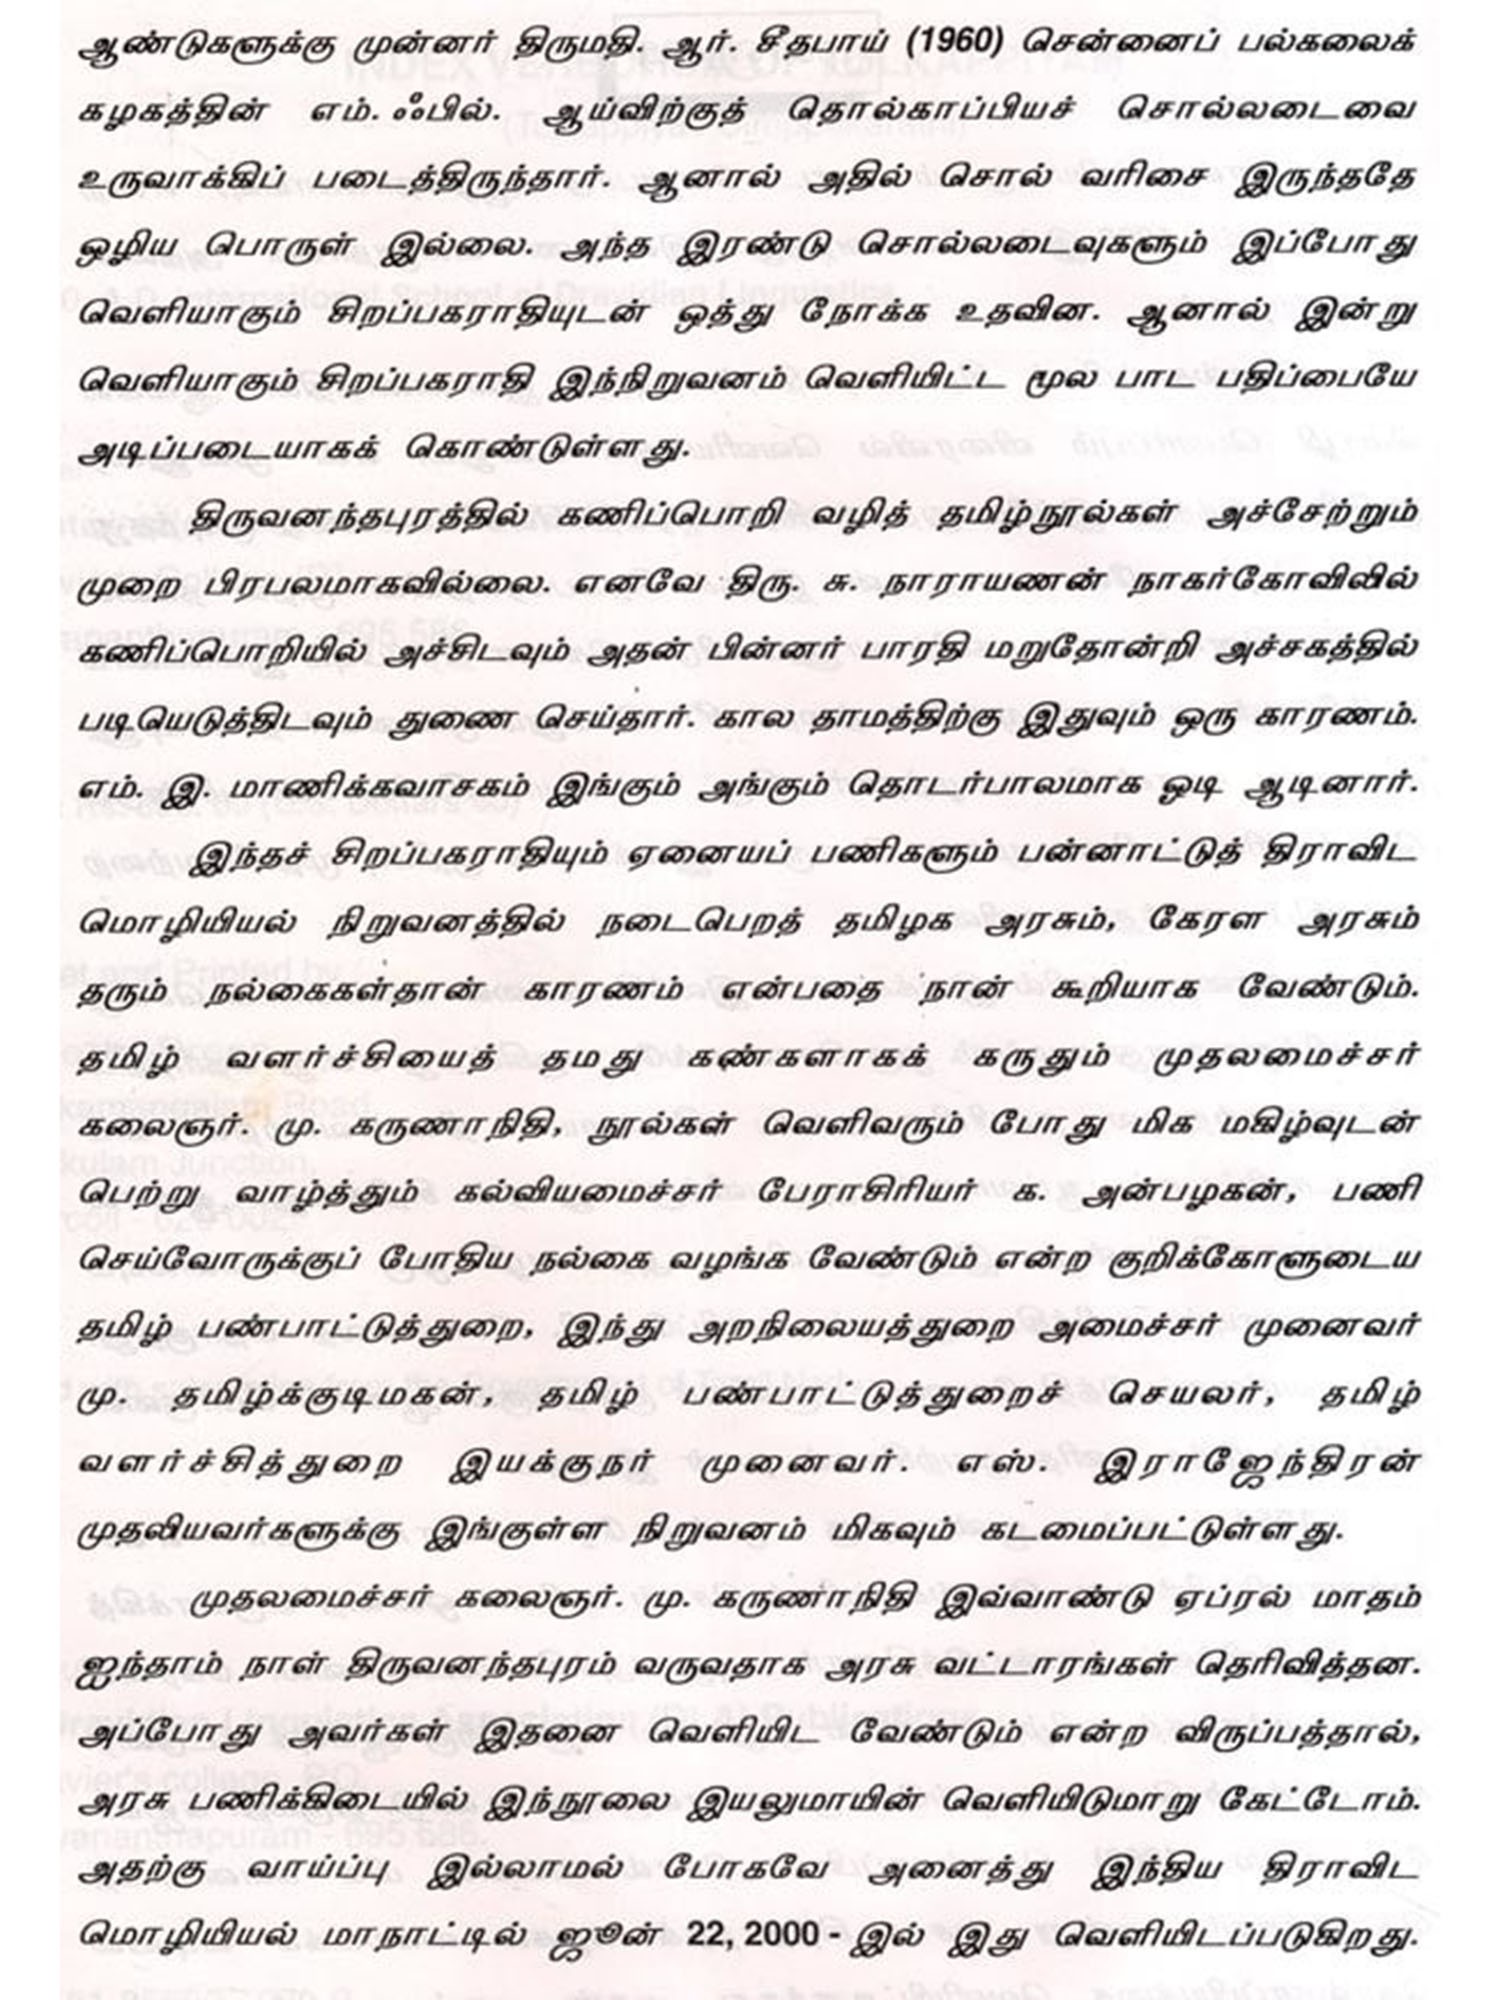 ஆண்டுகளுக்கு முன்னர் திருமதி. ஆர். சீதபாய் (1960) சென்னைப் பல்கலைக்
கழகத்தின் எம்.ஃபில். ஆய்விற்குத் தொல்காப்பியச் சொல்லடைவை
உருவாக்கிப் படைத்திருந்தார். ஆனால் அதில் சொல் வரிசை இருந்ததே
ஒழிய பொருள் இல்லை. அந்த இரண்டு சொல்லடைவுகளும் இப்போது
வெளியாகும் சிறப்பகராதியுடன் ஒத்து நோக்க உதவின. ஆனால் இன்று
வெளியாகும் சிறப்பகராதி இந்நிறுவனம் வெளியிட்ட மூல பாட பதிப்பையே
அடிப்படையாகக் கொண்டுள்ளது.
திருவனந்தபுரத்தில் கணிப்பொறி வழித் தமிழ்நூல்கள் அச்சேற்றும்
முறை பிரபலமாகவில்லை. எனவே திரு. சு. நாராயணன் நாகர்கோவிலில்
கணிப்பொறியில் அச்சிடவும் அதன் பின்னர் பாரதி மறுதோன்றி அச்சகத்தில்
படியெடுத்திடவும் துணை செய்தார். கால தாமத்திற்கு இதுவும் ஒரு காரணம்.
எம். இ. மாணிக்கவாசகம் இங்கும் அங்கும் தொடர்பாலமாக ஓடி ஆடினார்.
இந்தச் சிறப்பகராதியும் ஏனையப் பணிகளும் பன்னாட்டுத் திராவிட
மொழியியல் நிறுவனத்தில் நடைபெறத் தமிழக அரசும், கேரள அரசும்
தரும் நல்கைகள்தான் காரணம் என்பதை நான் கூறியாக வேண்டும்.
தமிழ் வளர்ச்சியைத் தமது கண்களாகக் கருதும் முதலமைச்சர்
கலைஞர். மு. கருணாநிதி, நூல்கள் வெளிவரும் போது மிக மகிழ்வுடன்
பெற்று வாழ்த்தும் கல்வியமைச்சர் பேராசிரியர் க. அன்பழகன், பணி
செய்வோருக்குப் போதிய நல்கை வழங்க வேண்டும் என்ற குறிக்கோளுடைய
தமிழ் பண்பாட்டுத்துறை, இந்து அறநிலையத்துறை அமைச்சர் முனைவர்
மு. தமிழ்க்குடிமகன், தமிழ் பண்பாட்டுத்துறைச் செயலர், தமிழ்
வளர்ச்சித்துறை இயக்குநர் முனைவர். எஸ். இராஜேந்திரன்
முதலியவர்களுக்கு இங்குள்ள நிறுவனம் மிகவும் கடமைப்பட்டுள்ளது.
முதலமைச்சர் கலைஞர். மு. கருணாநிதி இவ்வாண்டு ஏப்ரல் மாதம்
ஐந்தாம் நாள் திருவனந்தபுரம் வருவதாக அரசு வட்டாரங்கள் தெரிவித்தன.
அப்போது அவர்கள் இதனை வெளியிட வேண்டும் என்ற விருப்பத்தால்,
அரசு பணிக்கிடையில் இந்நூலை இயலுமாயின் வெளியிடுமாறு கேட்டோம்.
அதற்கு வாய்ப்பு இல்லாமல் போகவே அனைத்து இந்திய திராவிட
மொழியியல் மாநாட்டில் ஜூன் 22, 2000 - இல் இது வெளியிடப்படுகிறது.